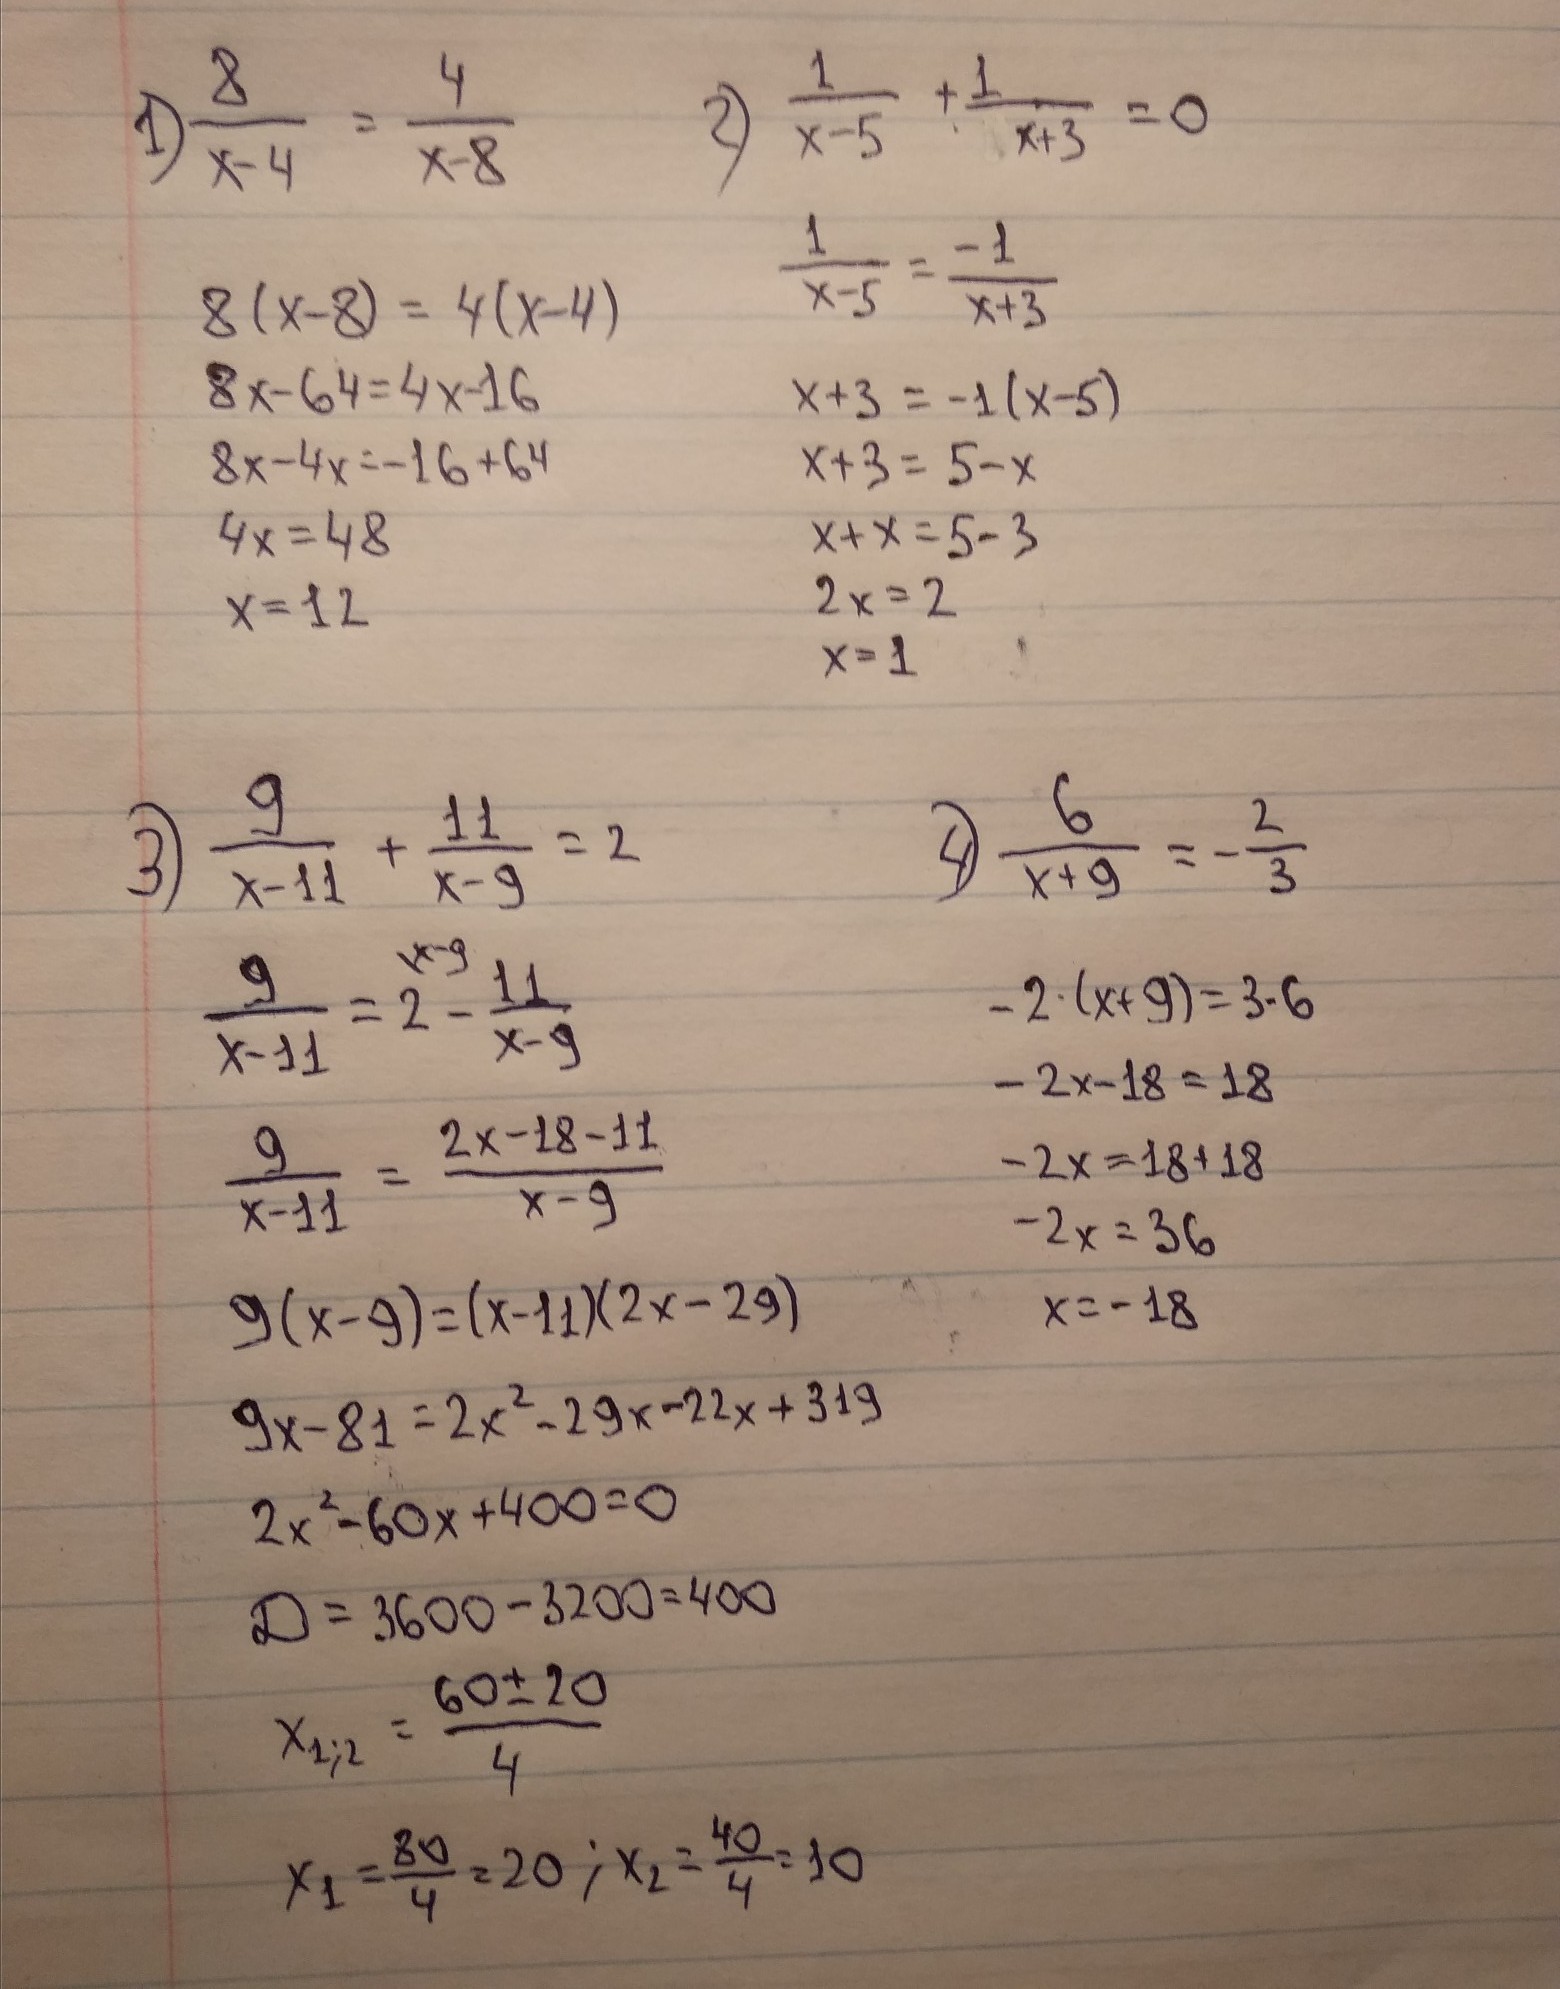 1) 8/(x-4) = 4/(x-8)
8(x-8) = 4(x-4)
8x-64=4x-16
8x-4x=-16+64
4x=48
x=12
2) 1/(x-5) + 1/(x+3) = 0
1/(x-5) = -1/(x+3)
x+3 = -1(x-5)
x+3 = 5-x
x+x=5-3
2x=2
x=1
3) 9/(x-11) + 11/(x-9) = 2
9/(x-11) = 2^(x-9) - 11/(x-9)
9/(x-11) = (2x-18-11)/(x-9)
9(x-9)=(x-11)(2x-29)
9x-81=2x²-29x-22x+319
2x²-60x+400=0
D=3600-3200=400
x₁;₂ = (60±20)/4
x₁ = 80/4 = 20; x₂ = 40/4 = 10
4) 6/(x+9) = -2/3
-2·(x+9)=3·6
-2x-18=18
-2x=18+18
-2x=36
x=-18